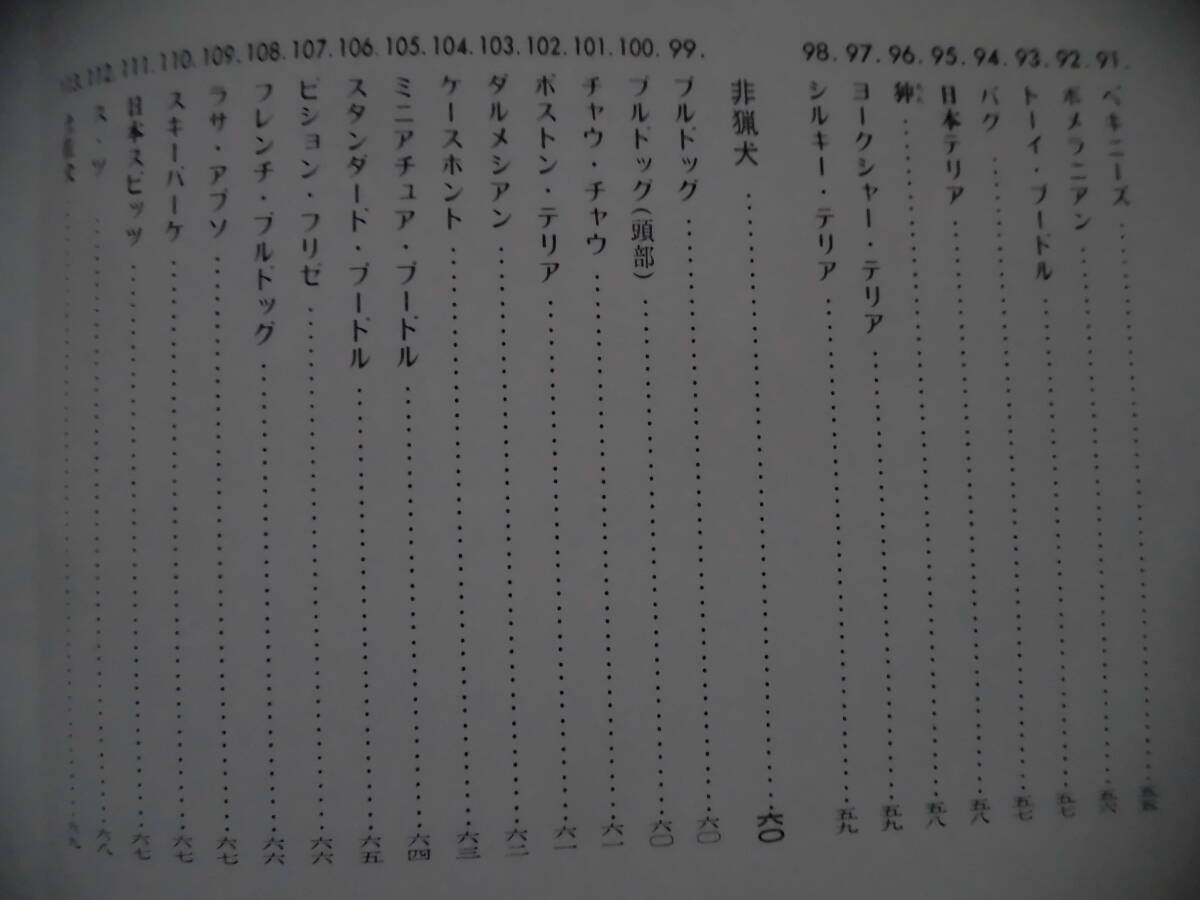 91. ペキニーズ……
92. ポメラニアン……五六
93. トーイ・プードル……五七
94. パグ……五七
95. 日本テリア……五八
96. 狆……五八
97. ヨークシャー・テリア……五九
98. シルキー・テリア……五九
非猟犬……六〇
99. ブルドッグ……六〇
100. ブルドッグ(頭部)……六〇
101. チャウ・チャウ……六一
102. ボストン・テリア……六一
103. ダルメシアン……六二
104. ケースホント……六三
105. ミニアチュア・プードル……六四
106. スタンダード・プードル……六五
107. ビション・フリゼ……六六
108. フレンチ・ブルドッグ……六六
109. ラサ・アプソ……六七
110. スキーパーケ……六七
111. 日本スピッツ……六七
112. ……六八
……六九